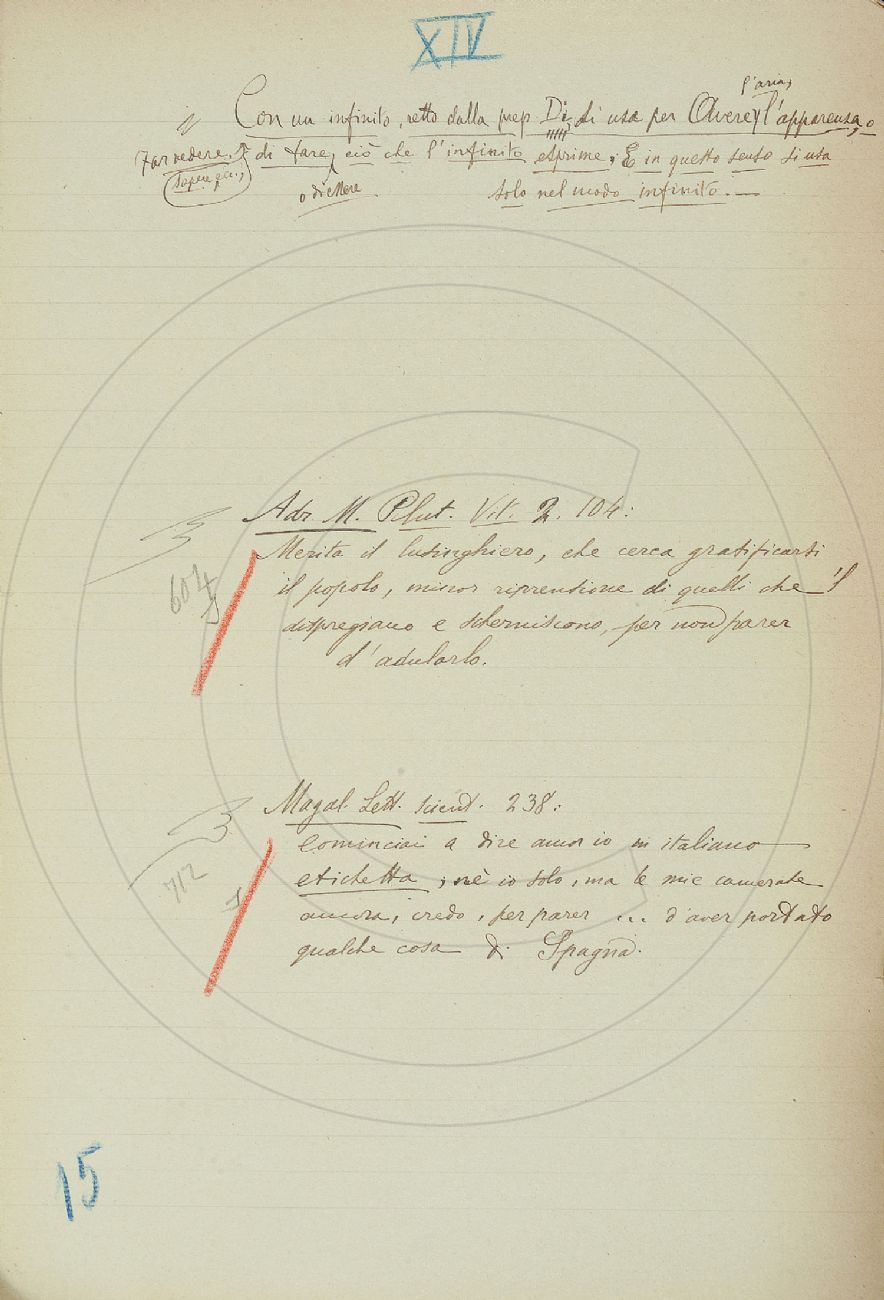 XIV
l'aria,
Con un infinito, retto dalla prep. Di, si usa per Avere l'apparenza, o
Far vedere, di fare, ciò che l'infinito esprime; E in questo senso si usa
o di essere solo nel modo infinito. —
Adr. M. Plut. Vit. 2. 104:
Merita il lusinghiero, che cerca gratificarsi
il popolo, minor riprensione di quelli che 'l
dispregiano e scherniscono, per non parer
d'adularlo.
604
Magal. Lett. scient. 238:
Cominciai a dire anch'io in italiano
etichetta; nè io solo, ma le mie camerate
ancora, credo, per parer ... d'aver portato
qualche cosa di Spagna.
712
15